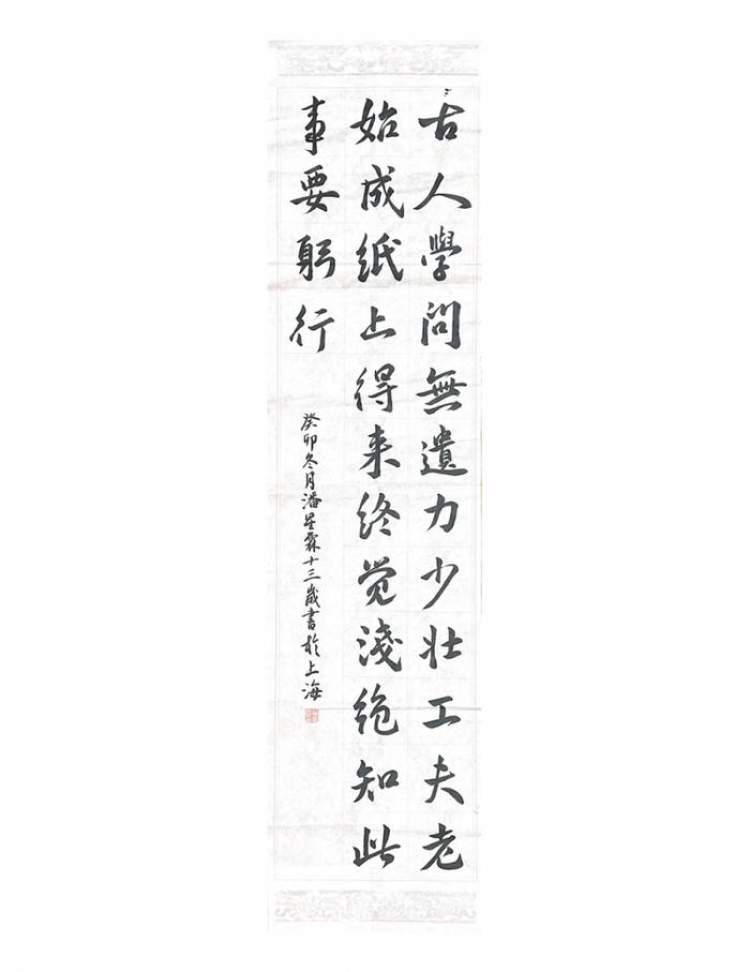 古人學問無遺力少壯工夫老
始成紙上得来终觉淺绝知此
事要躬行
癸卯冬月潘星霖十三歲書於上海